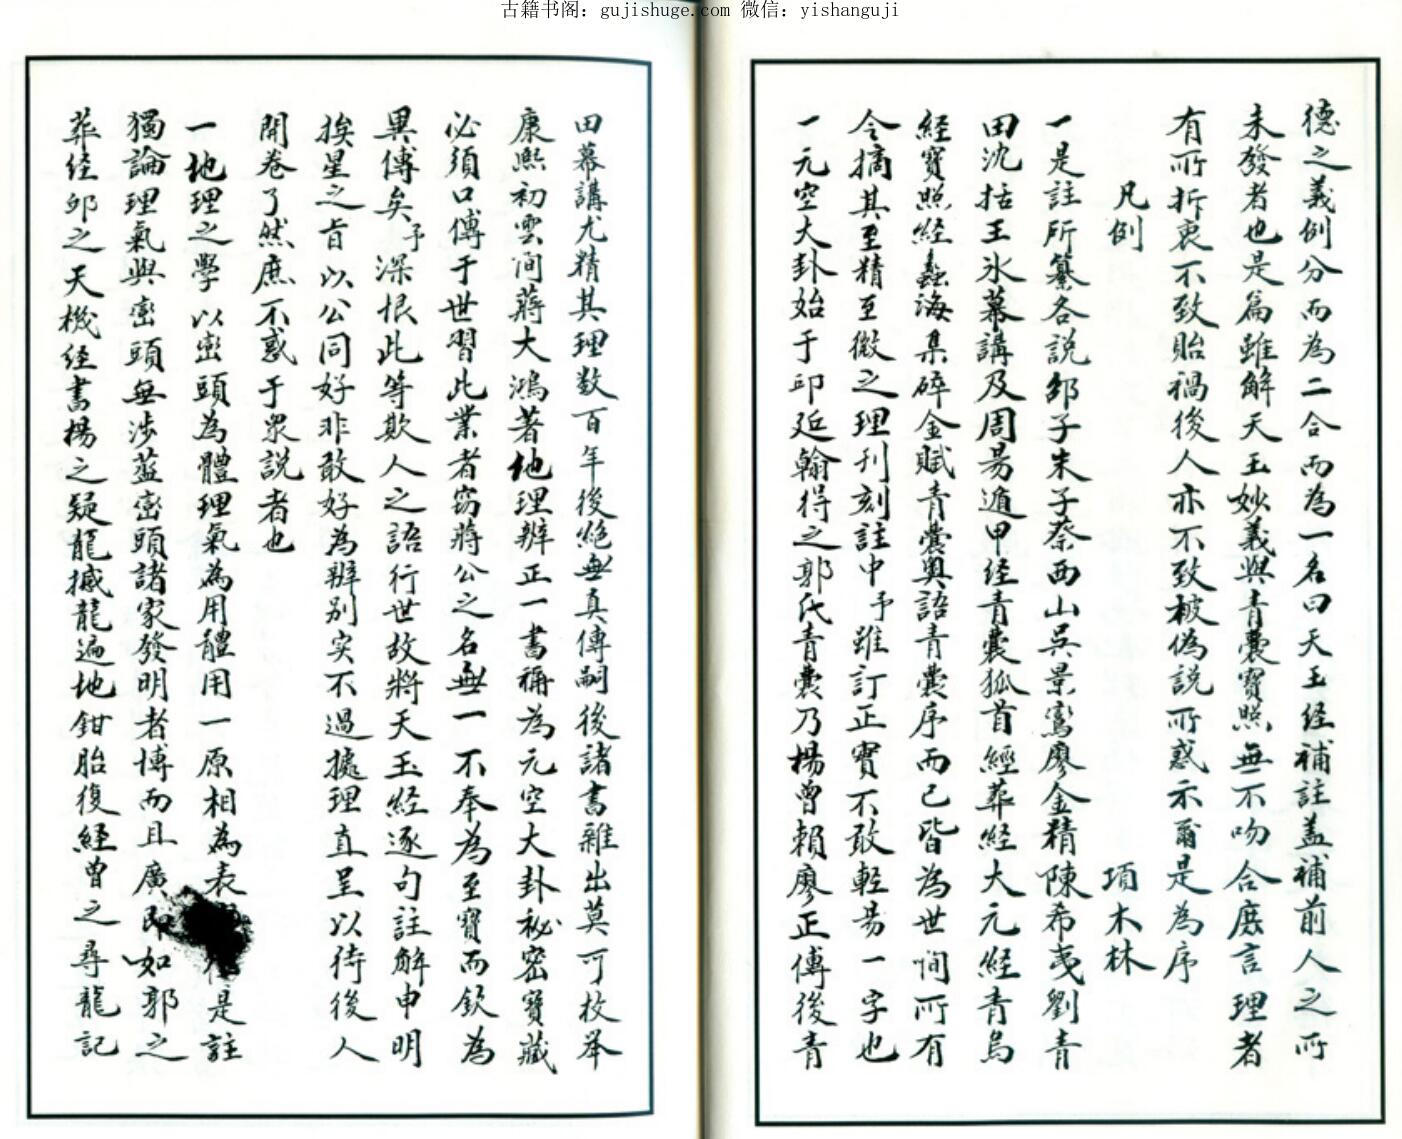 古籍书阁：gujishuge.com 微信：yishanguji
德之義例分而為二合而為一名曰天玉经補註盖補前人之所
未發者也是篇雖解天玉妙義與青囊寶照無不吻合庶言理者
有所折衷不致貽禍後人亦不致被偽説所惑示爾是為序
項木林
凡例
一是註所纂各説邵子朱子蔡西山吳景鸞廖金精陳希夷劉青
田沈括王氷幕講及周易遁甲经青囊狐首經葬经大元经青烏
经寶照经蠡海集碎金賦青囊奥語青囊序而已皆為世间所有
今摘其至精至微之理刊刻註中予雖訂正實不敢輕易一字也
一元空大卦始于邱延翰得之郭氏青囊乃楊曾賴廖正傳後青
田幕講尤精其理数百年後絶無真傳嗣後諸書雜出莫可枚举
康熙初雲间蔣大鴻著地理辨正一書稱為元空大卦秘密寶藏
必須口傳于世習此業者窃蔣公之名無一不奉為至寶而欽為
異傳矣予深恨此等欺人之語行世故將天玉经逐句註解申明
挨星之旨以公同好非敢好為辨别实不過據理直呈以待後人
開卷了然庶不惑于衆説者也
一地理之學以巒頭為體理氣為用體用一原相為表是註
獨論理氣與巒頭無涉蓋巒頭諸家發明者博而且廣即如郭之
葬经邱之天機经書楊之疑龍撼龍遍地鉗胎復經曾之尋龍記